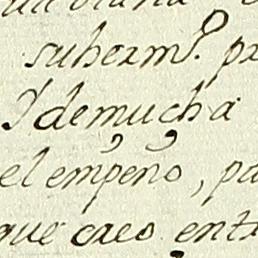 su herm.º
Y de mucha
el empeño, pa
que creo entr